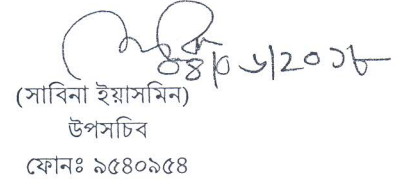 ০৪/০৬/২০১৮
(সাবিনা ইয়াসমিন)
উপসচিব
ফোনঃ ৯৫৪০৯৫৪